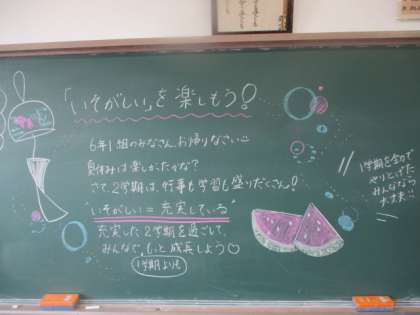 「いそがしい」を楽しもう!
6年1組のみなさん、お帰りなさい
夏休みは楽しかったかな?
さて、2学期は、行事も学習も盛りだくさん!
"いそがしい=充実している"
充実した2学期を過ごして、
みんなで、もっと成長しよう♡
1学期よりも
1学期を全力で
やりとげた
みんななら
大丈夫!!